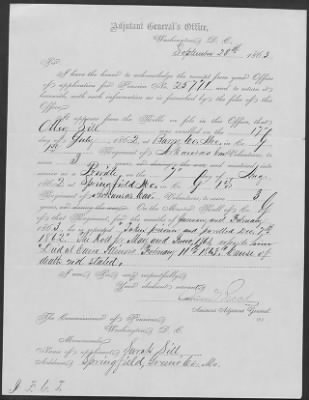 Adjutant General's Office,
Washington, D. C.
September 28th, 1863.
Sir:
I have the honor to acknowledge the receipt from your Office
of application for Pension No. 25771, and to return it
herewith, with such information as is furnished by the files of this
Office.
It appears from the Rolls on file in this Office, that
Sill was enrolled on the 17th
day of July, 1862, at Co. Mo. in
1st Regiment of Arkansas Cav. Volunteers, to
serve 3 years, or during the war, and mustered into
service as a Private on the 7th day of Aug.
1862, at Springfield Mo. in Co. 1st
Regiment of Arkansas Cav. Volunteers, to serve 3
years, or during the war. On the Muster Roll of Co.
of that Regiment, for the months of January and February,
1863, he is reported "Taken prisoner and paroled Dec. 7th
1862." The Roll for May and June, 1863,
Died at Illinois February 11th 1863. Cause of
death not stated.
I am, Sir, very respectfully,
Your obedient servant,
Assistant Adjutant General.
The Commissioner of Pensions,
Washington, D. C.
Memoranda:
Name of applicant, Sarah Sill
Address, Springfield, Greene Co. Mo.